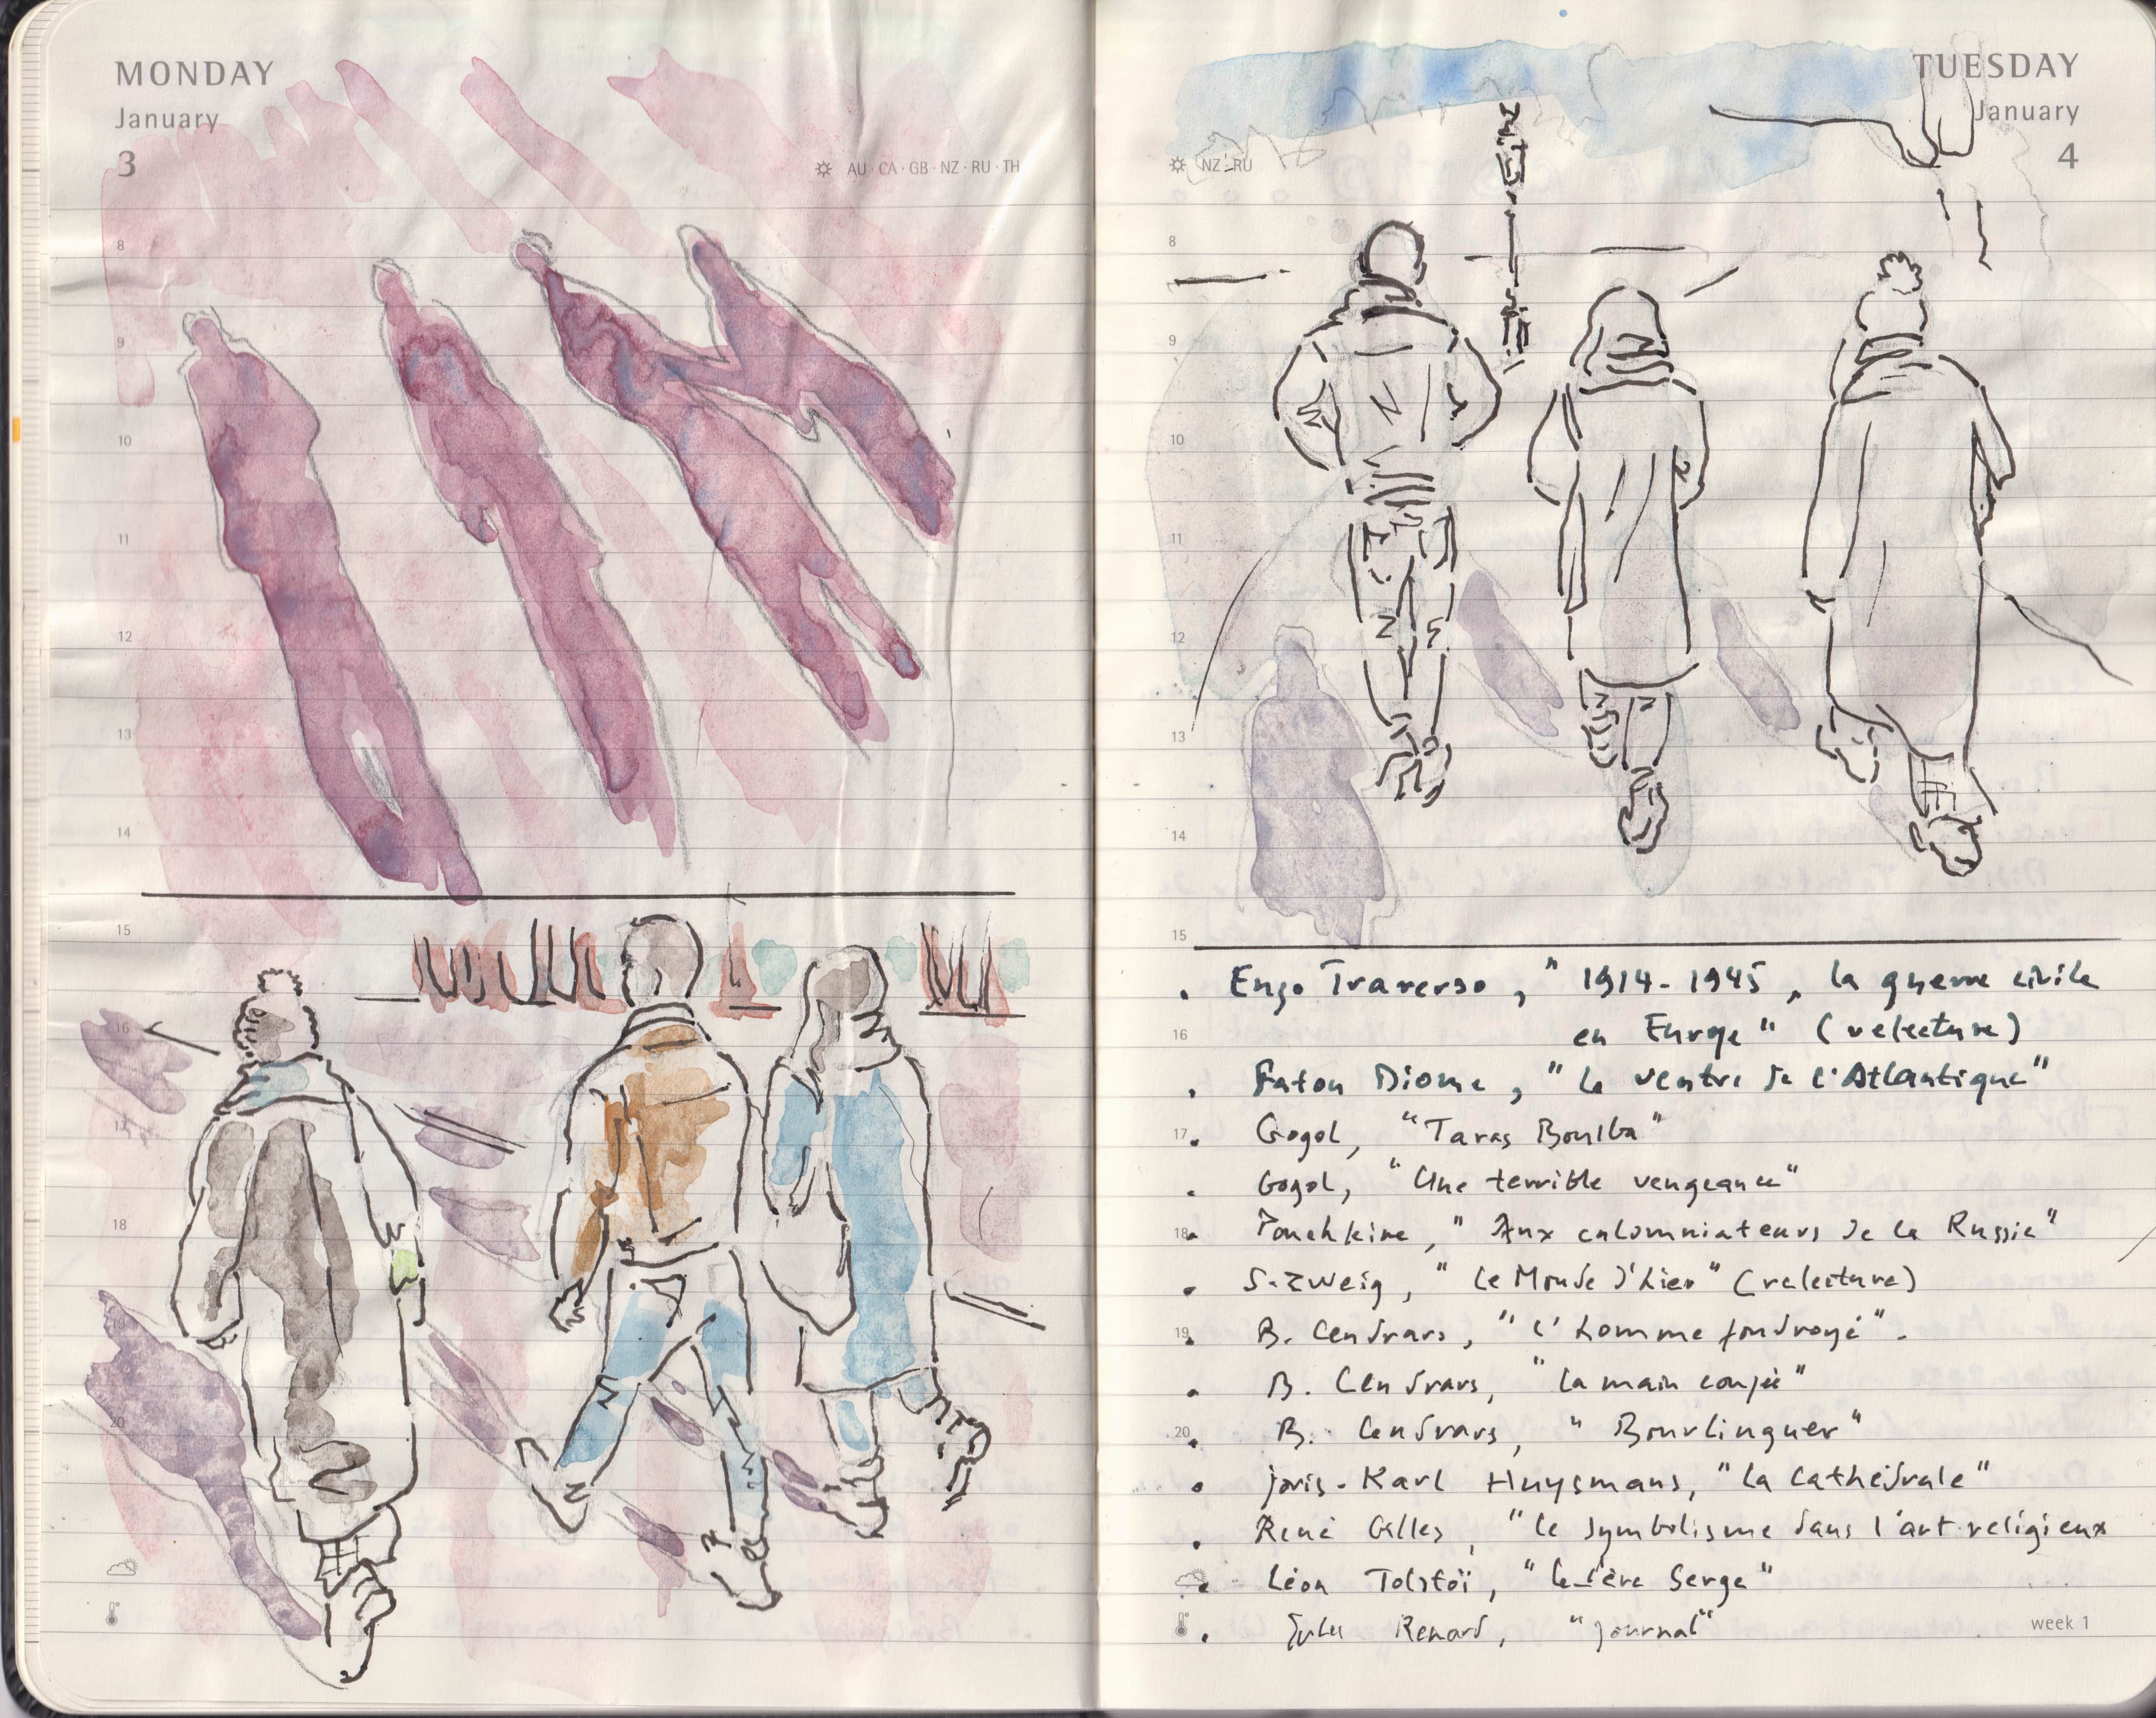 MONDAY
January
3
AU · CA · GB · NZ · RU · TH
8
9
10
11
12
13
14
15
16
17
18
19
20
TUESDAY
January
4
NZ · RU
8
9
10
11
12
13
14
15
. Enzo Traverso, " 1914-1945, la guerre civile
16 en Europe" (relecture)
. Fatou Diome, "le ventre de l'Atlantique"
17 . Gogol, "Taras Boulba"
. Gogol, "Une terrible vengeance"
18 . Pouchkine, "Aux calomniateurs de la Russie"
. S. Zweig, "Le Monde d'hier" (relecture)
19 . B. Cendrars, "l'homme foudroyé".
. B. Cendrars, "la main coupée"
20 . B. Cendrars, "Bourlinguer"
. Joris-Karl Huysmans, "la cathédrale"
. René Gilles, "le symbolisme dans l'art religieux
. Léon Tolstoï, "le Père Serge"
. Jules Renard, "Journal"
week 1